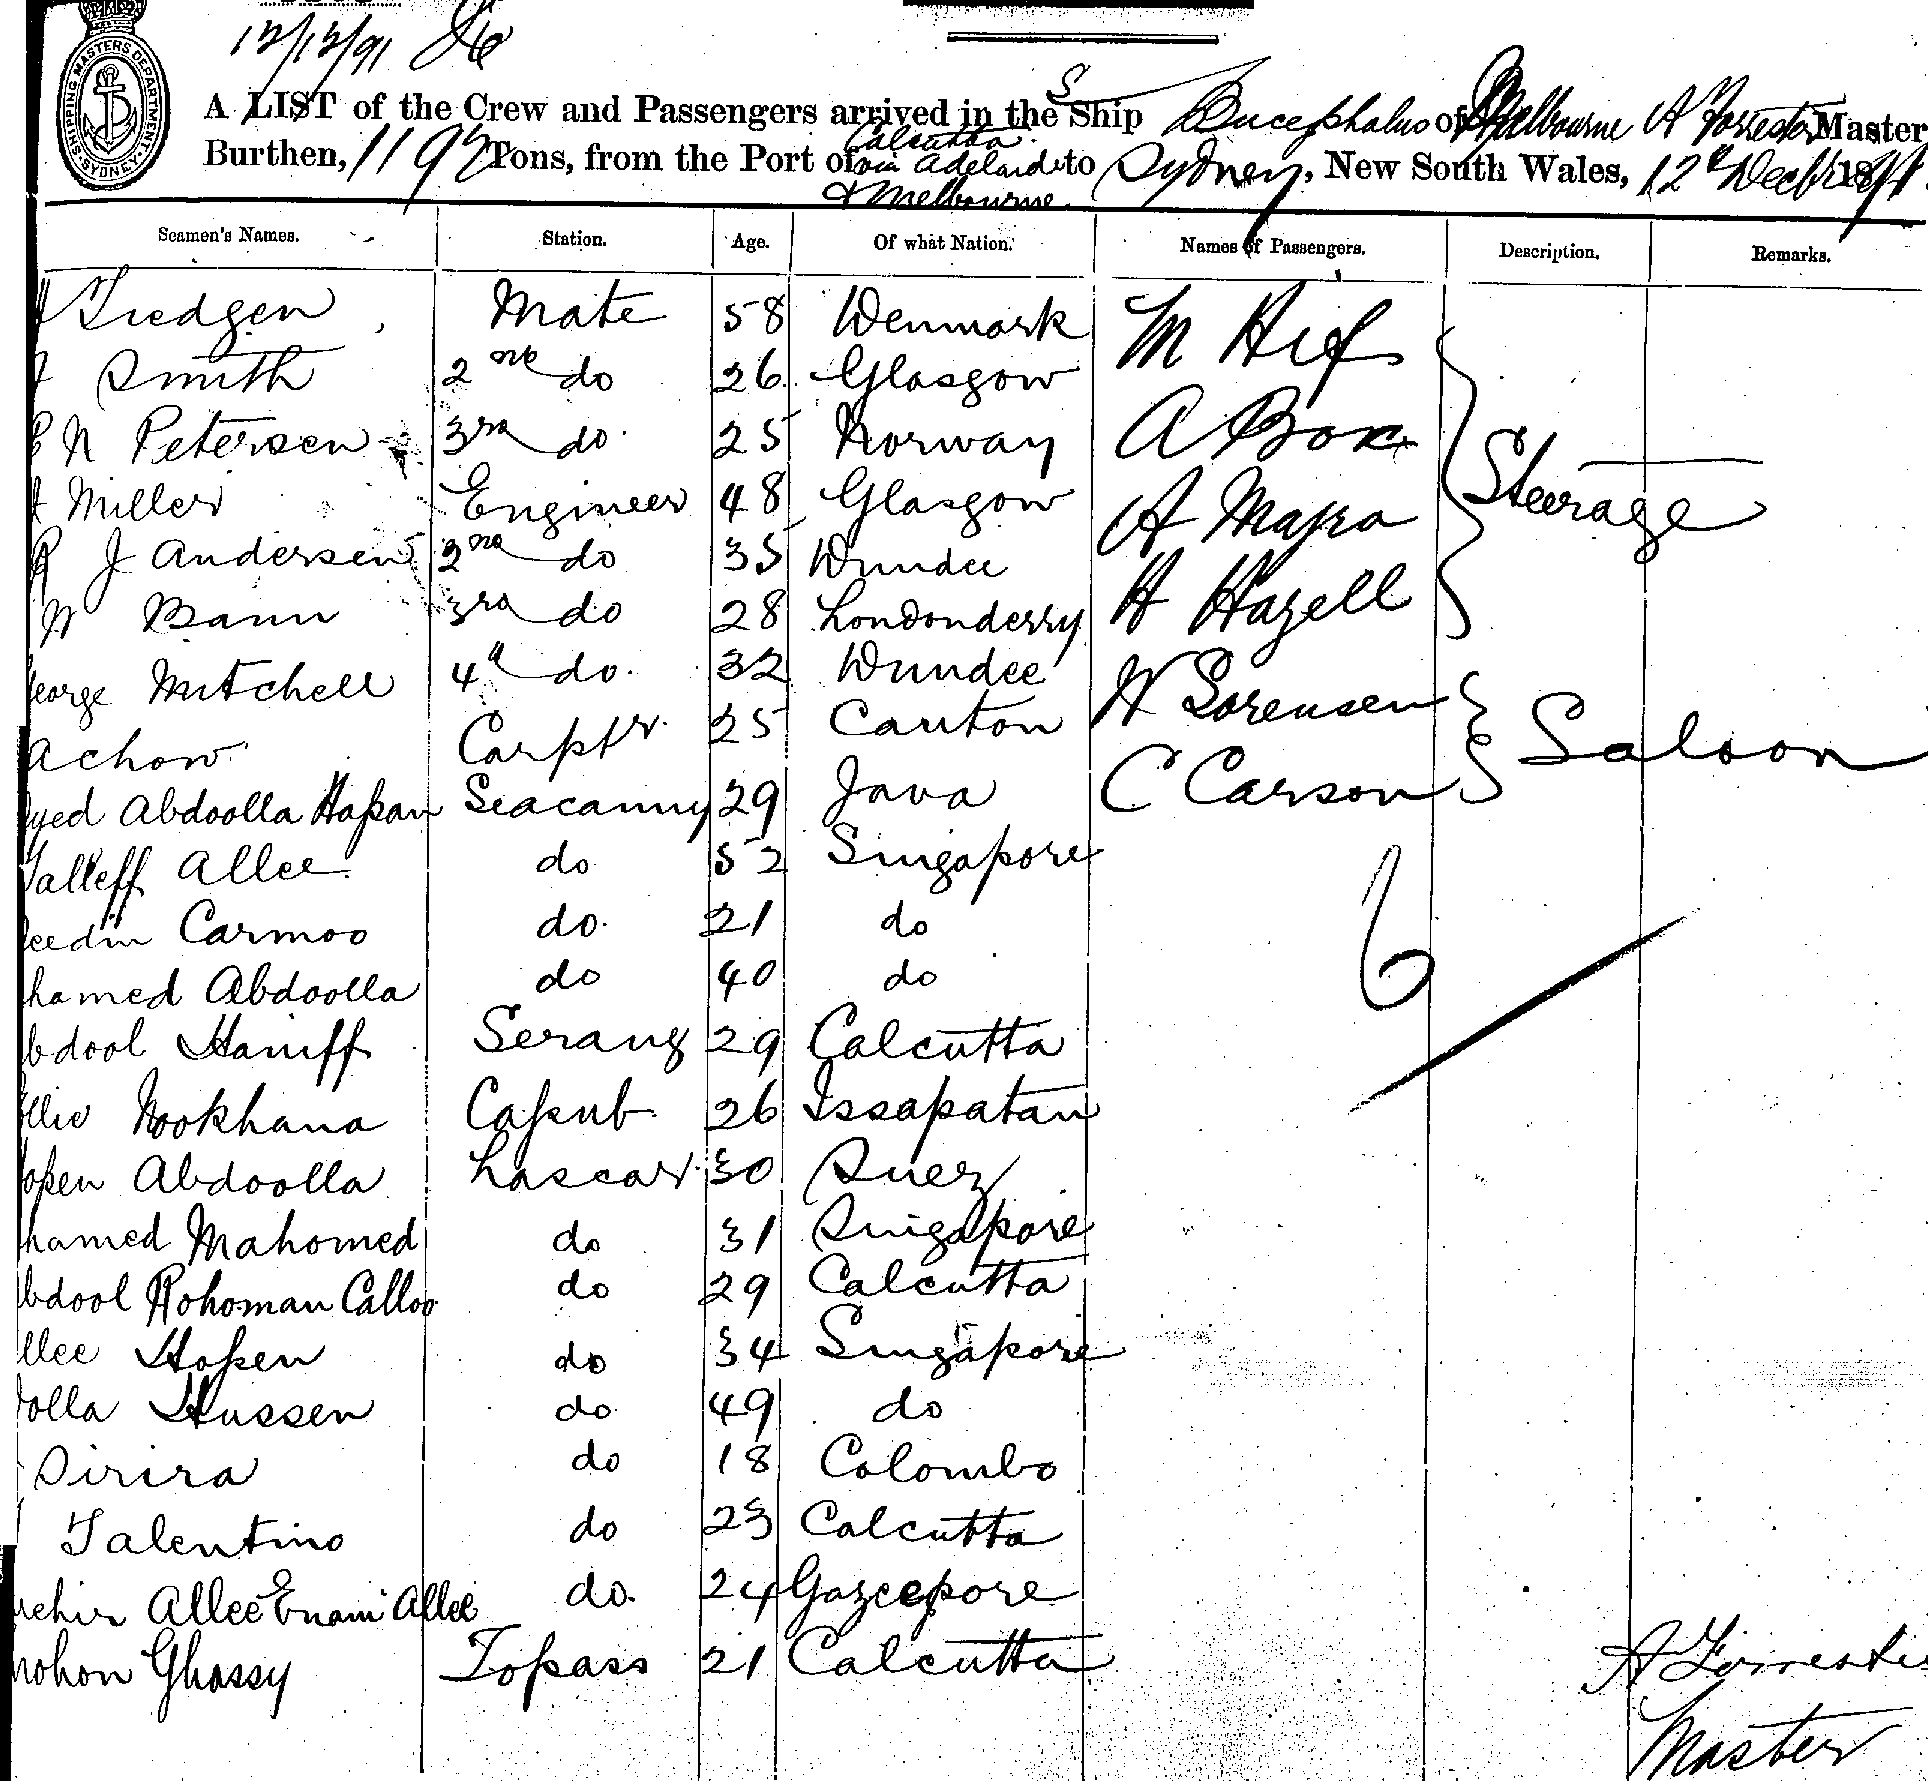 12/12/91
SHIPPING MASTERS DEPARTMENT SYDNEY
A LIST of the Crew and Passengers arrived in the S Ship Bucephalus of Melbourne A Forrester Master
Burthen, 1197 Tons, from the Port of Calcutta via Adelaide & Melbourne to Sydney, New South Wales, 12th Decbr 1891
Seamen's Names. Station. Age. Of what Nation. Names of Passengers. Description. Remarks.
Tredgen Mate 58 Denmark M Hif
Smith 2nd do 26 Glasgow
N Petersen 3rd do 25 Norway A Box
Miller Engineer 48 Glasgow A Majra Steerage
R J Andersen 2nd do 35 Dundee
W Bann 3rd do 28 Londonderry H Hazell
eorge Mitchell 4th do 32 Dundee N Sorensen
Achow Carptr 25 Canton Saloon
yed Abdoolla Hassan Seacunny 29 Java C Carson
alleff Allee do 52 Singapore
eedin Carmoo do 21 do
hamed Abdoolla do 40 do 6
bdool Haniff Serang 29 Calcutta
llie Nookhana Cassub 26 Issapatan
ossen Abdoolla Lascar 30 Suez
hamed Mahomed do 31 Singapore
bdool Rohoman Calloo do 29 Calcutta
llee Hossen do 34 Singapore
olla Hussen do 49 do
Sirira do 18 Colombo
Talentino do 23 Calcutta
Allee Enam Allee do 24 Gazeepore
mohon Ghassy Topass 21 Calcutta A Forrester
Master